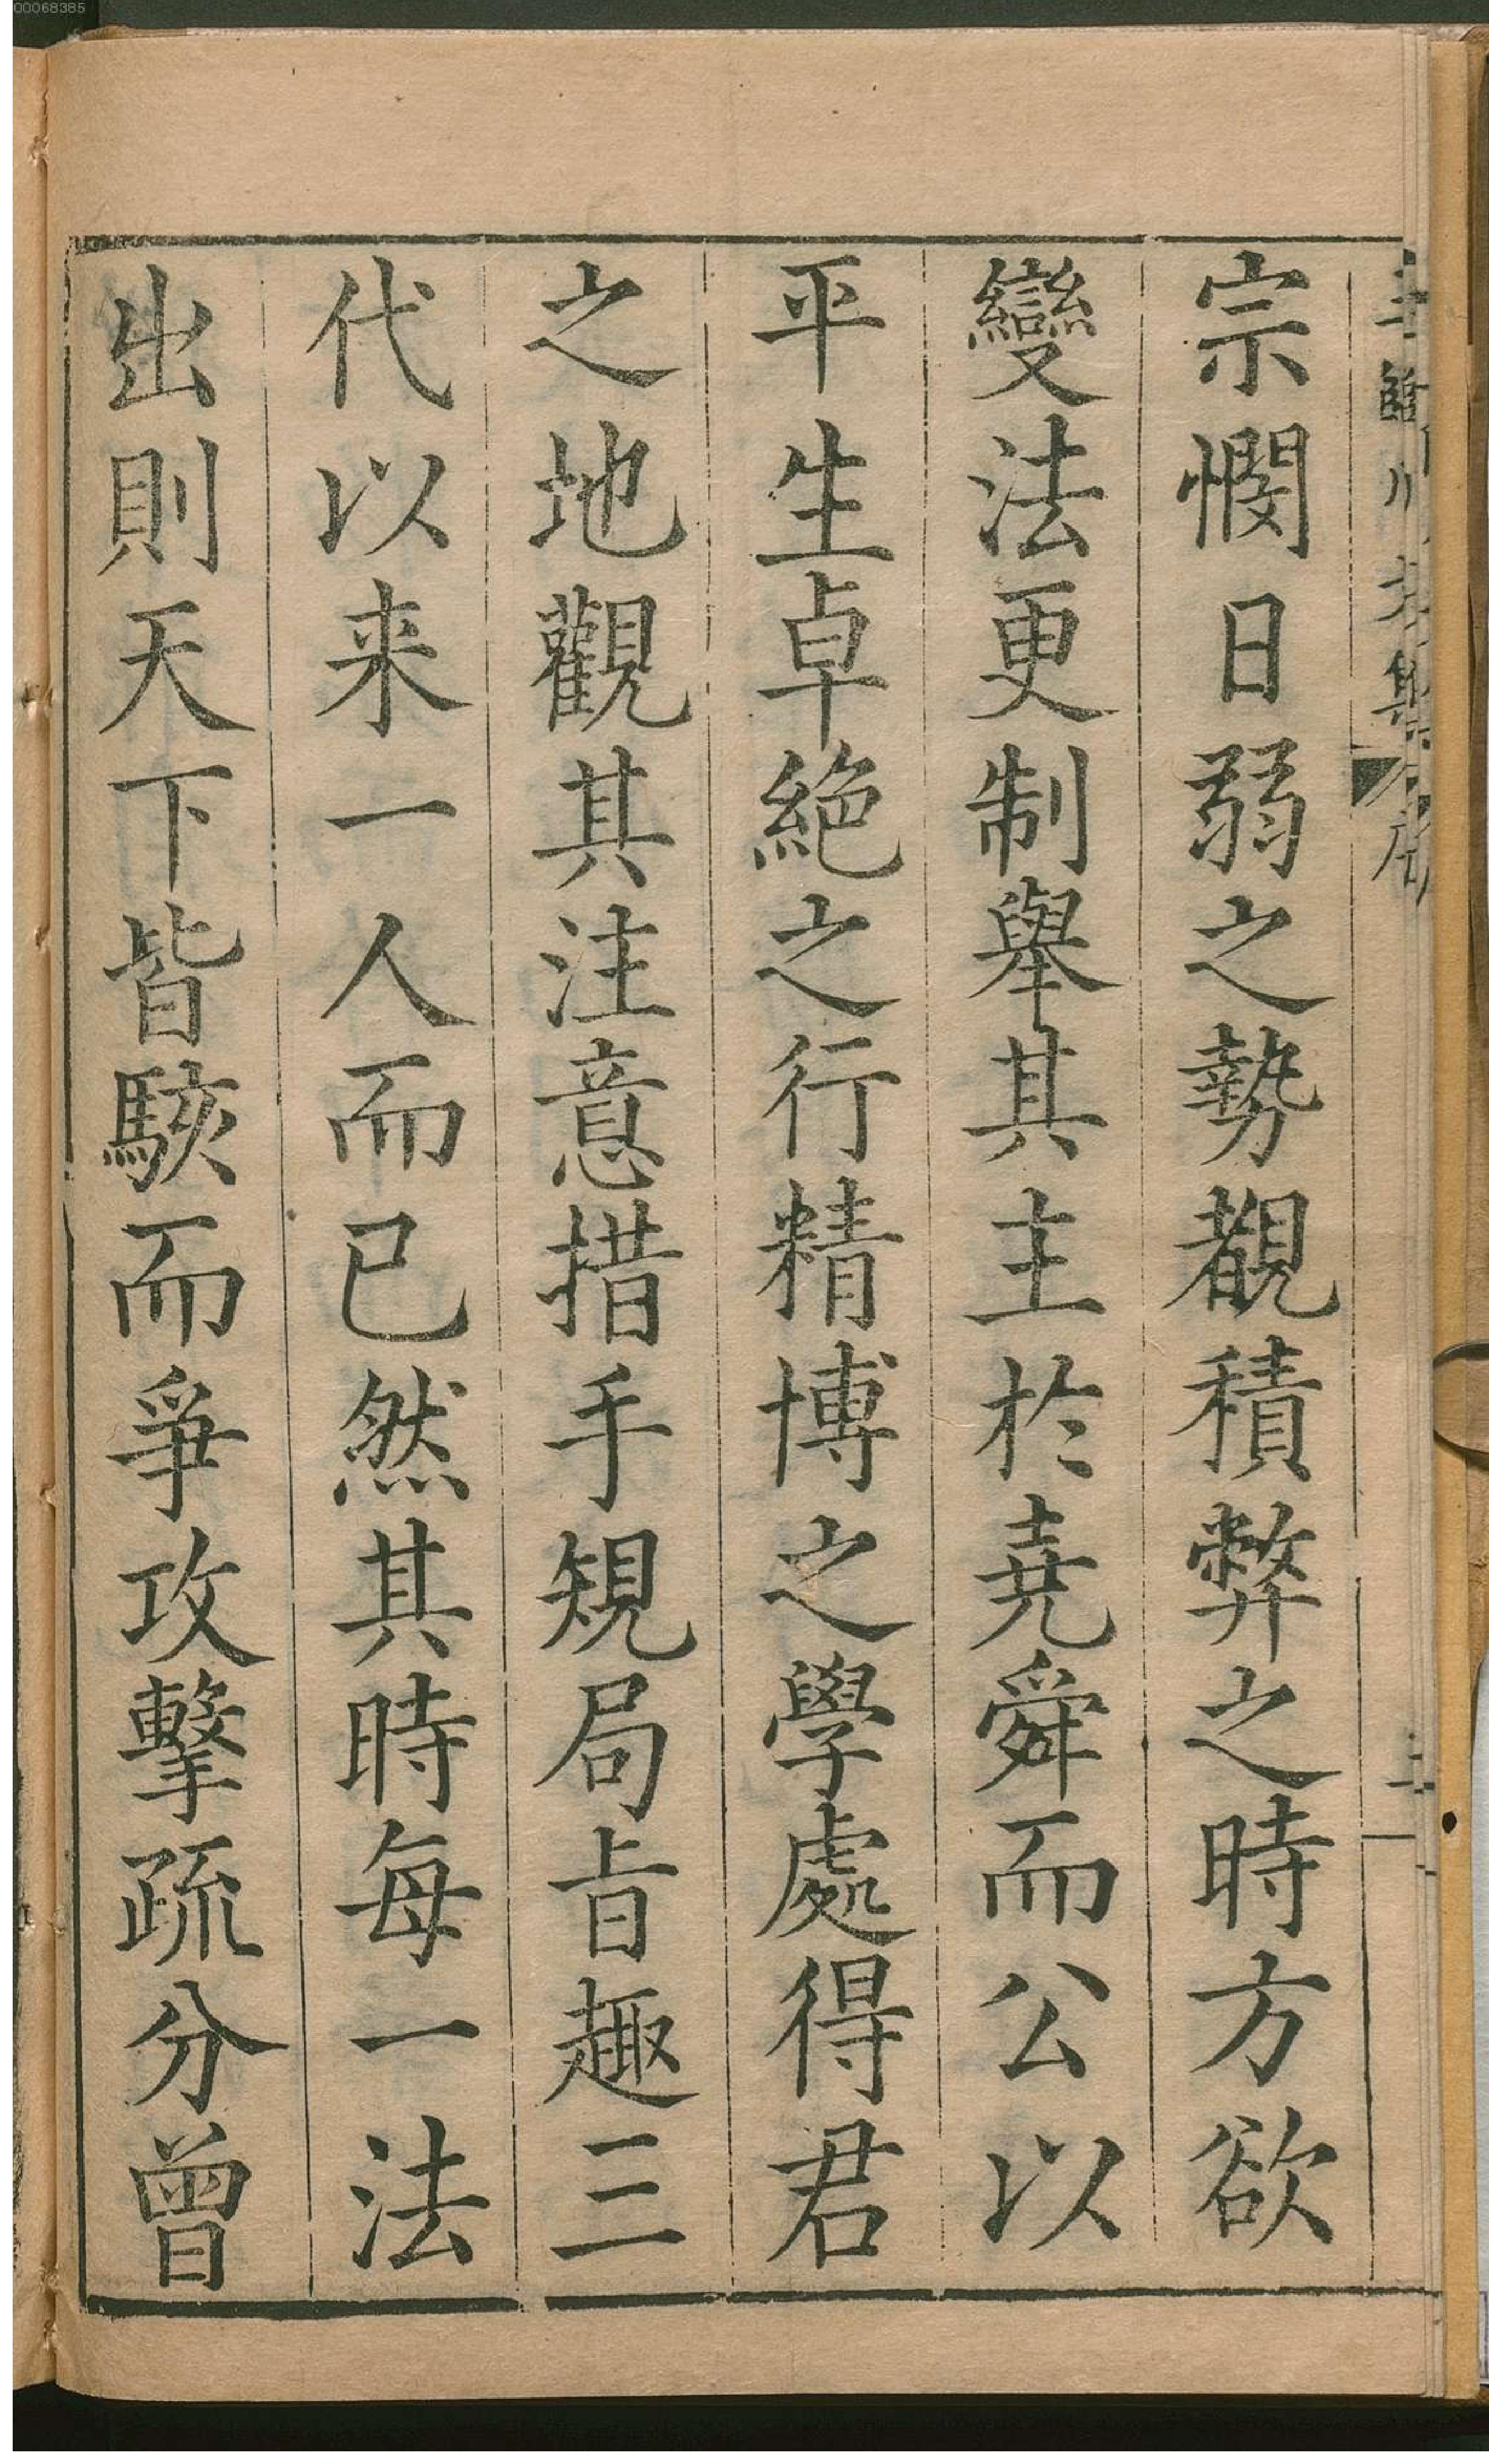 00068385
宗憫日弱之勢覩積弊之時方欲
變法更制舉其主於堯舜而公以
平生卓絶之行精博之學處得君
之地觀其注意措手規局旨趣三
代以来一人而已然其時每一法
出則天下皆駭而爭攻擊疏分曾